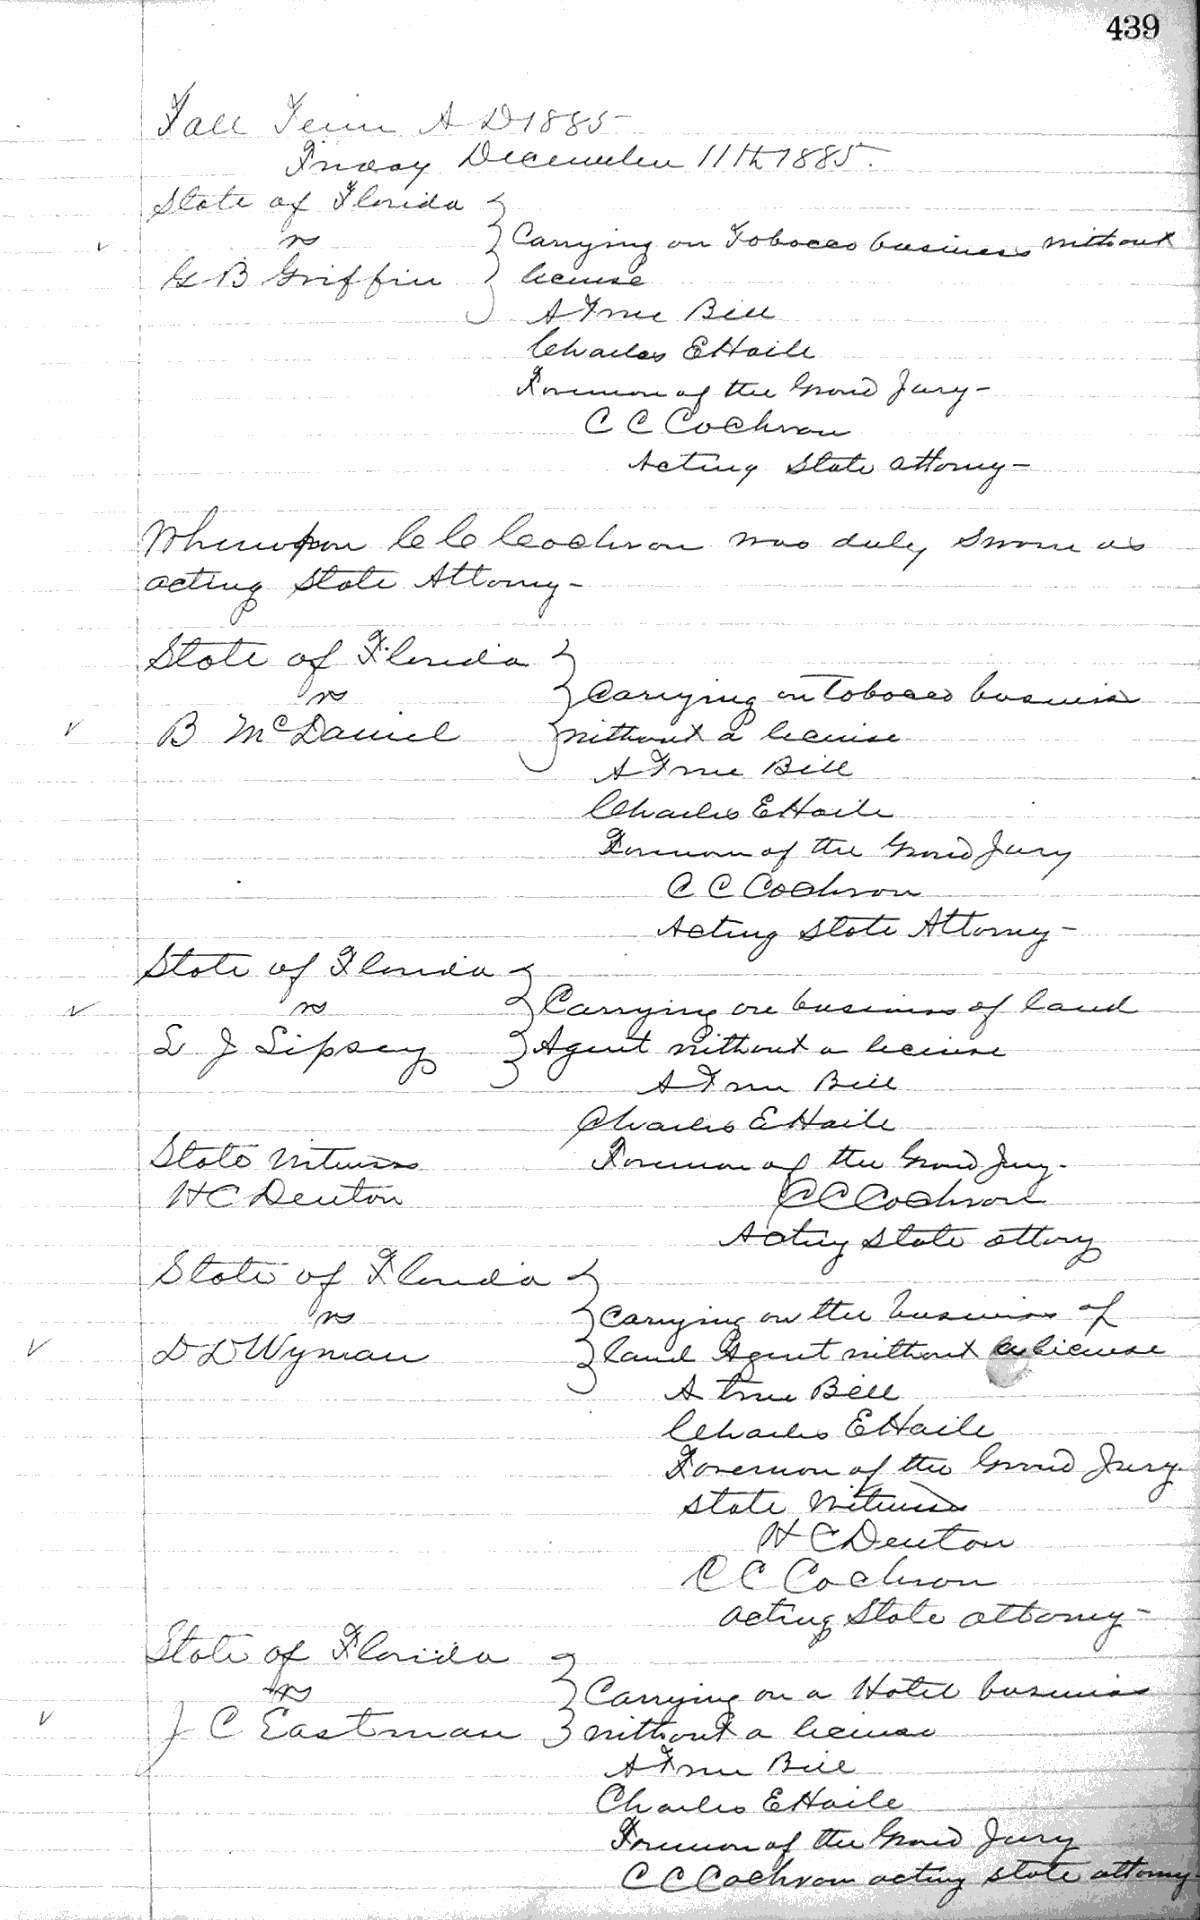 439
Fall Term A D 1885
Friday December 11th 1885.
State of Florida
vs } Carrying on Tobacco business without
G B Griffin } license
A True Bill
Charles E Haile
Foreman of the Grand Jury-
C C Cochran
Acting State attorney-
Whereupon C C Cochran was duly sworn as
acting State Attorney-
State of Florida
vs } Carrying on Tobacco business
B McDaniel } without a license
A True Bill
Charles E Haile
Foreman of the Grand Jury
C C Cochran
Acting State Attorney-
State of Florida
vs } Carrying on business of land
L J Lipsey } Agent without a license
A True Bill
Charles E Haile
State Witness Foreman of the Grand Jury-
H C Denton C C Cochran
Acting State attory
State of Florida
vs } Carrying on the business of
D D Wyman } land Agent without a license
A true Bill
Charles E Haile
Foreman of the Grand Jury-
State Witness
H C Denton
C C Cochran
acting State attorney-
State of Florida
vs } Carrying on a Hotel business
J C Eastman } without a license
A True Bill
Charles E Haile
Foreman of the Grand Jury
C C Cochran acting state attorney-